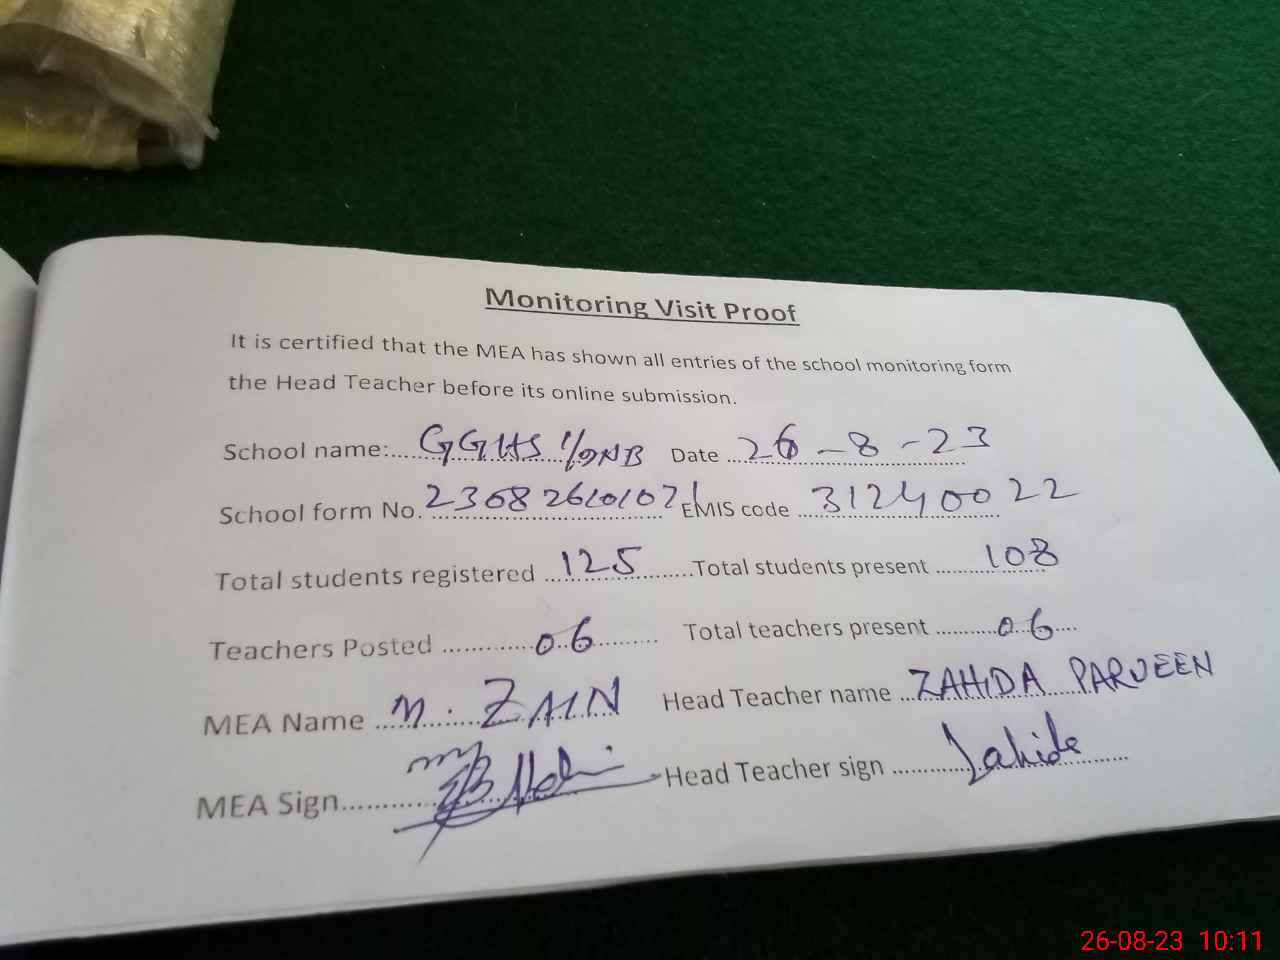 Monitoring Visit Proof
It is certified that the MEA has shown all entries of the school monitoring form
the Head Teacher before its online submission.
School name: GGHS 1/DNB Date 26-8-23
School form No. 2308261010721 EMIS code 31240022
Total students registered 125 Total students present 108
Teachers Posted 06 Total teachers present 06
MEA Name M. ZAIN Head Teacher name ZAHIDA PARVEEN
MEA Sign Head Teacher sign Zahida
26-08-23 10:11